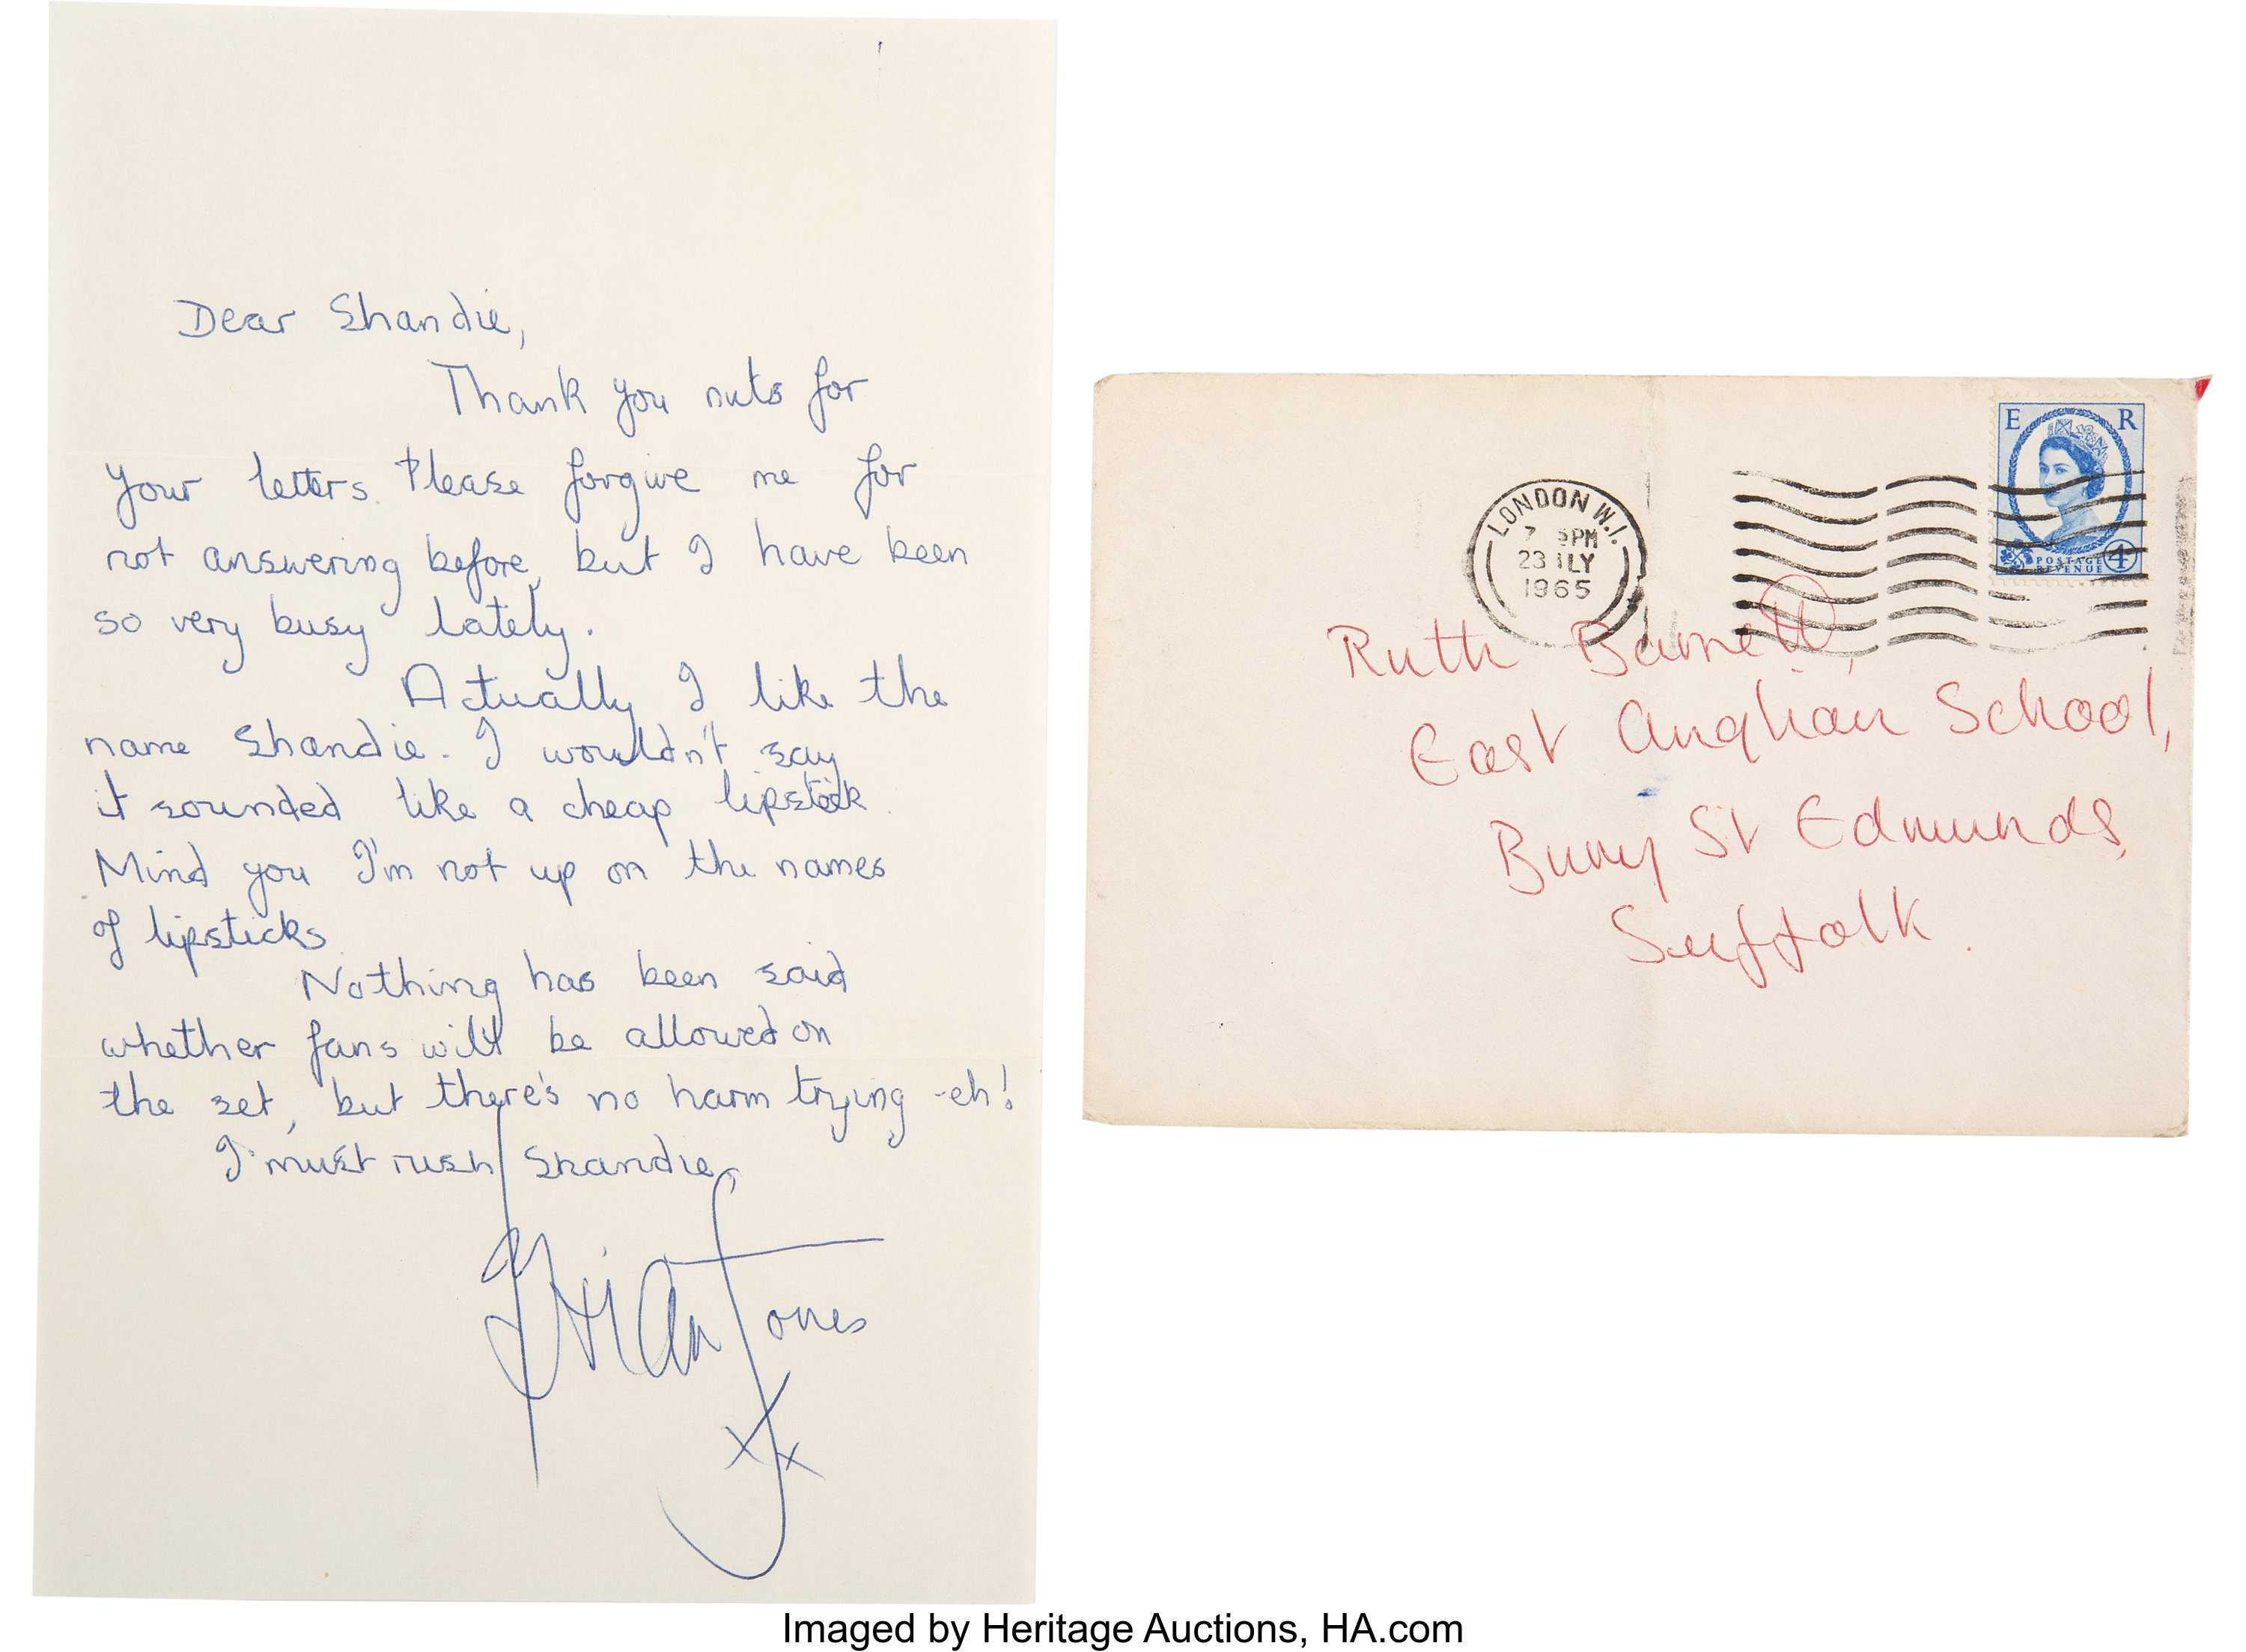 Dear Shandie,
Thank you nuts for
your letters. Please forgive me for
not answering before, but I have been
so very busy lately.
Actually I like the
name Shandie. I wouldn't say
it sounded like a cheap lipstick.
Mind you I'm not up on the names
of lipsticks.
Nothing has been said
whether fans will be allowed on
the set, but there's no harm trying -eh!
I must rush Shandie,
Brian Jones
xx
E R
POSTAGE
REVENUE
4
LONDON W.1.
PM
23 JLY
1965
Ruth Barnett,
East Anglian School,
Bury St Edmunds,
Suffolk.
Imaged by Heritage Auctions, HA.com